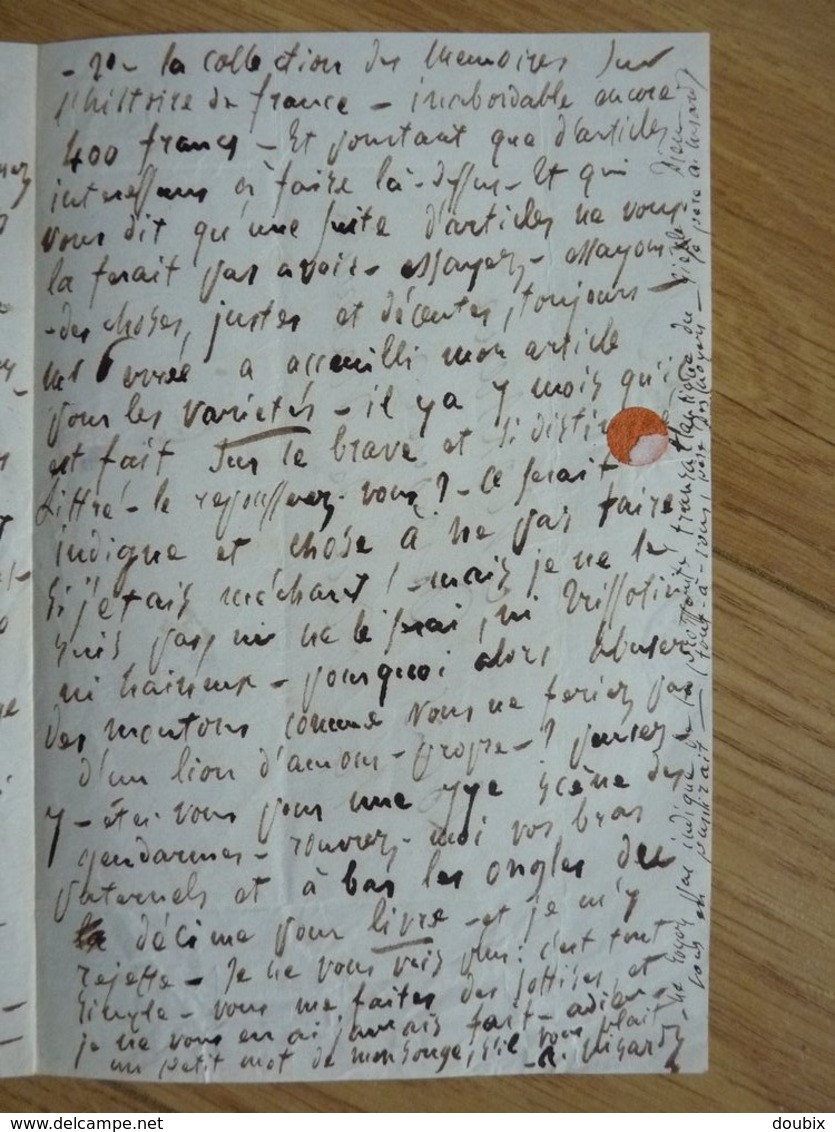 - 2o - la collection des Memoires sur
l'histoire de france - inabordable encore
400 francs - Et pourtant que d'articles
interessans à faire là-dessus - Et qui
vous dit qu'une suite d'articles ne vous
la ferait pas avoir - essayez - essayons
- des choses, justes et décentes, toujours -
Mr a accueilli mon article
pour les varietés - il y a 7 mois qu'il
est fait sur le brave et si
Littré - le - vous ? - ce serait
indigne et chose à ne pas faire
si j'étais méchant ! - mais je ne le
suis pas, ni ne le serai, ni
ni haineux - pourquoi alors abuser
des moutons comme vous ne feriez pas
d'un lion d'amour-propre - ? pensez
y - êtes vous pour une scène des
gendarmes - rouvrez-moi vos bras
paternels et à bas les ongles du
décime pour livre - et je m'y
rejette - Je ne vous vois plus : c'est tout
simple - vous me faites des sottises et
je ne vous en ai jamais fait - adieu -
un petit mot de mensonge, s'il vous plait
- ne soyez pas indigne de la transatlantique du
vous en - tout-à-vous, père des -
doubix